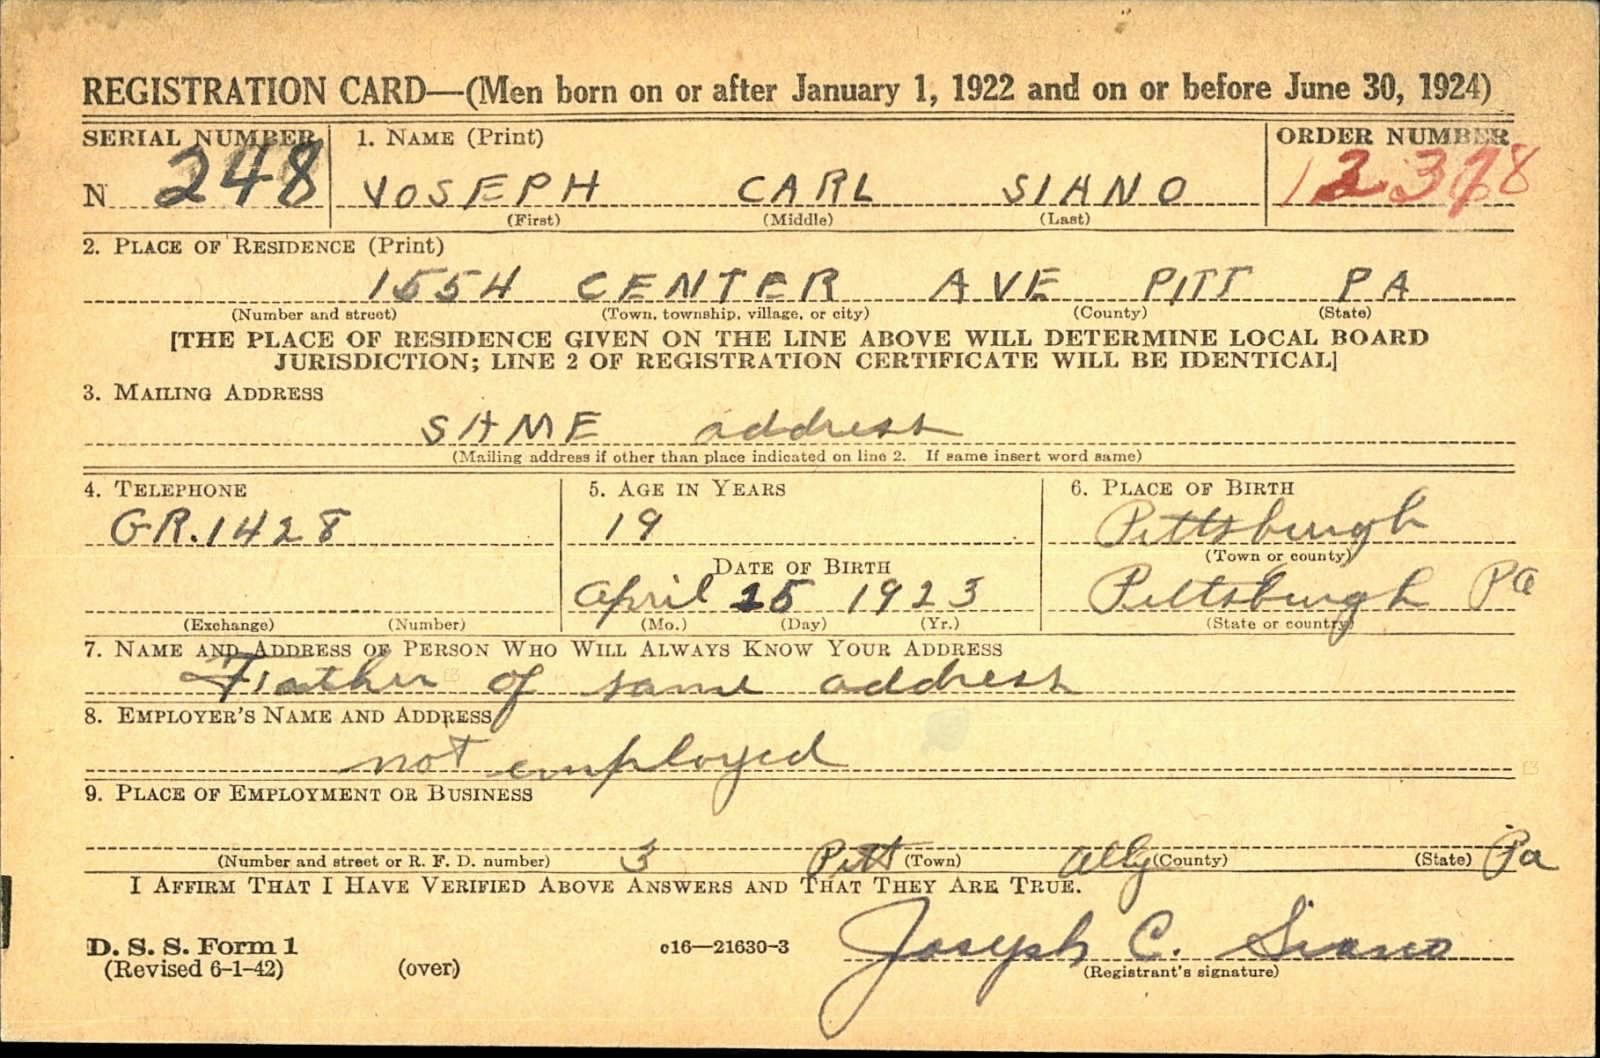 REGISTRATION CARD—(Men born on or after January 1, 1922 and on or before June 30, 1924)
SERIAL NUMBER 1. NAME (Print) ORDER NUMBER
N 248 JOSEPH CARL SIANO
(First) (Middle) (Last)
2. PLACE OF RESIDENCE (Print)
1554 CENTER AVE PITT PA
(Number and street) (Town, township, village, or city) (County) (State)
[THE PLACE OF RESIDENCE GIVEN ON THE LINE ABOVE WILL DETERMINE LOCAL BOARD
JURISDICTION; LINE 2 OF REGISTRATION CERTIFICATE WILL BE IDENTICAL]
3. MAILING ADDRESS
SAME address
(Mailing address if other than place indicated on line 2. If same insert word same)
4. TELEPHONE 5. AGE IN YEARS 6. PLACE OF BIRTH
GR. 1428 19 Pittsburgh
(Town or county)
DATE OF BIRTH
April 25 1923 Pittsburgh Pa
(Exchange) (Number) (Mo.) (Day) (Yr.) (State or country)
7. NAME AND ADDRESS OF PERSON WHO WILL ALWAYS KNOW YOUR ADDRESS
Father of same address
8. EMPLOYER'S NAME AND ADDRESS
not employed
9. PLACE OF EMPLOYMENT OR BUSINESS
(Number and street or R. F. D. number) 3 Pitt (Town) Ally (County) (State) Pa
I AFFIRM THAT I HAVE VERIFIED ABOVE ANSWERS AND THAT THEY ARE TRUE.
D. S. S. Form 1 c16—21630-3 Joseph C. Siano
(Revised 6-1-42) (over) (Registrant's signature)